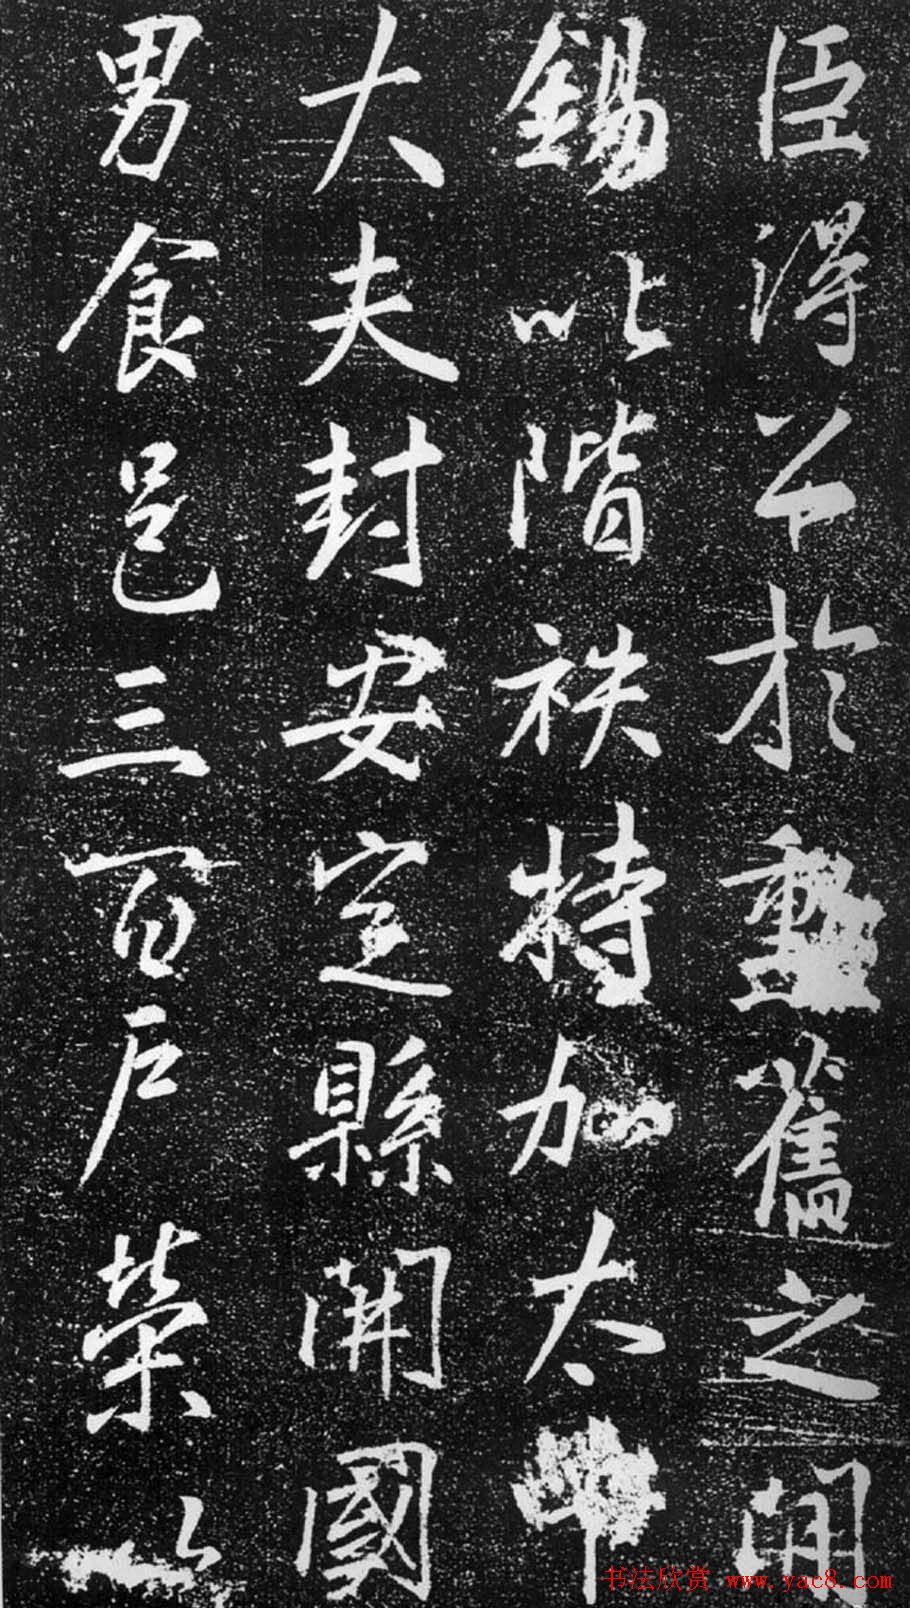 臣得公於勳舊之閒
錫以階袟特加太中
大夫封安定縣開國
男食邑三百戶榮以
书法欣赏 www.yac8.com